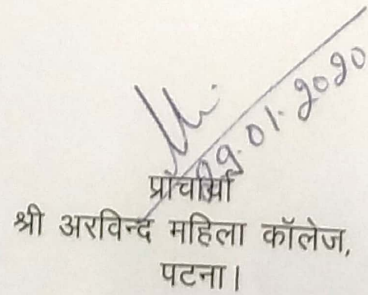 29.01.2020
प्राचार्या
श्री अरविन्द महिला कॉलेज,
पटना।